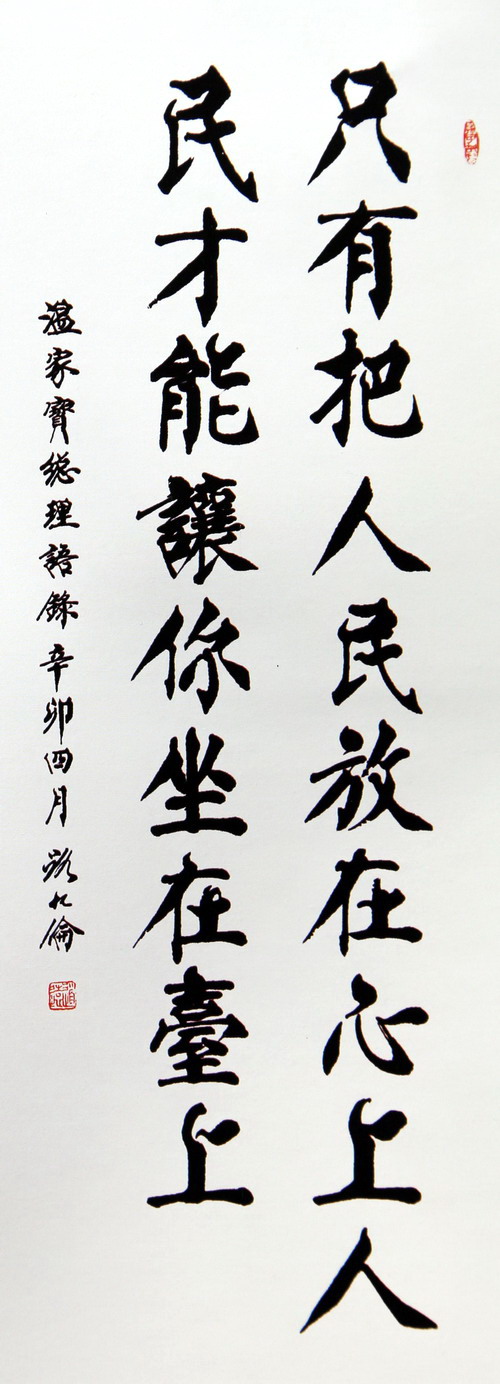 只有把人民放在心上人
民才能讓你坐在臺上
溫家寶總理語錄辛卯四月